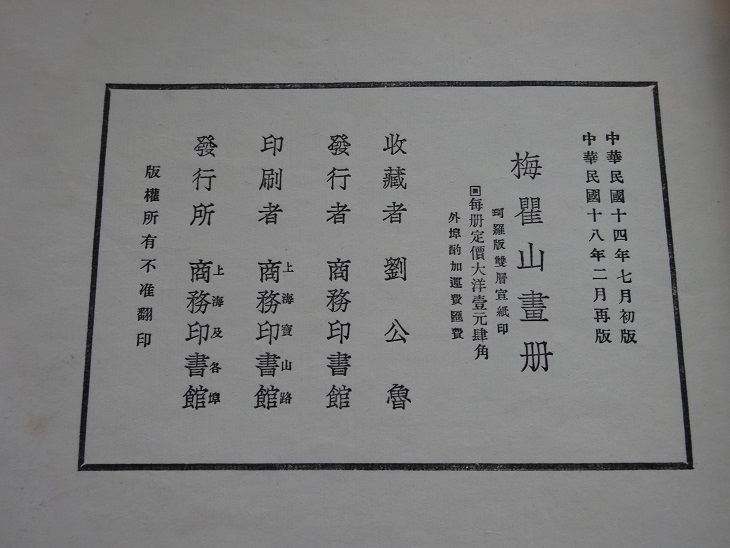 中華民國十四年七月初版
中華民國十八年二月再版
梅瞿山畫册
珂羅版雙層宣紙印
每册定價大洋壹元肆角
外埠酌加運費匯費
收藏者 劉公魯
發行者 商務印書館
印刷者 上海寶山路 商務印書館
發行所 上海及各埠 商務印書館
版權所有不准翻印